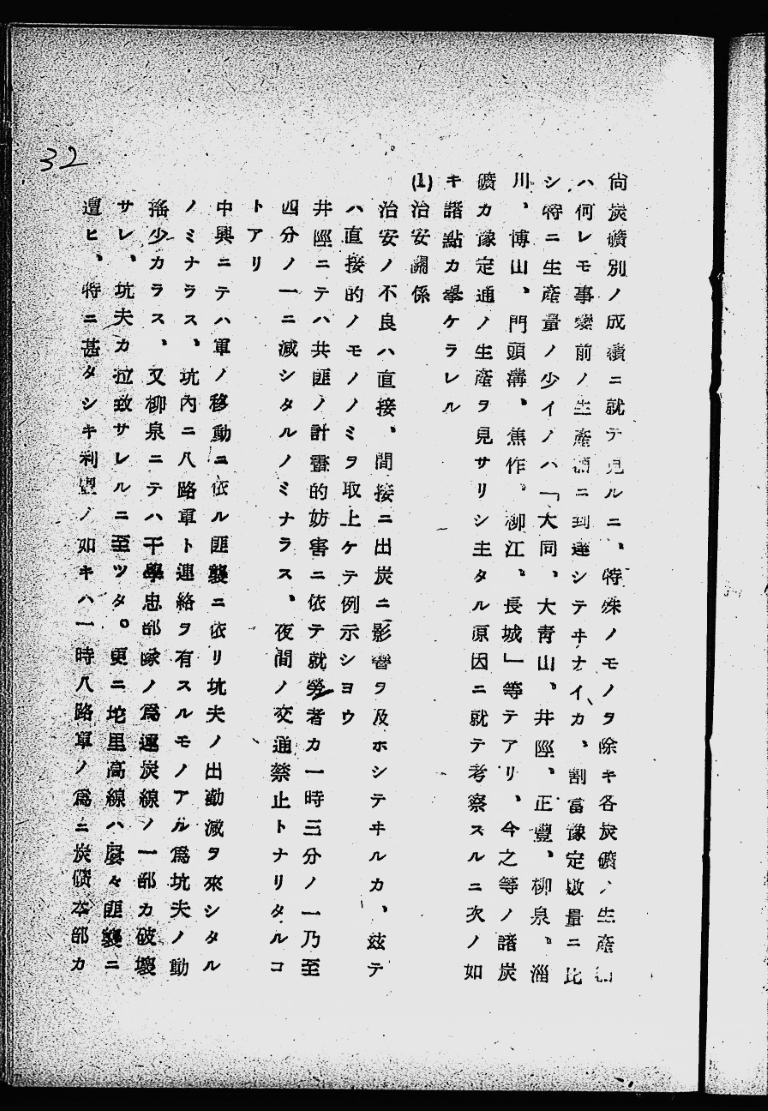 32
尙炭礦別ノ成績ニ就テ見ルニ、特殊ノモノヲ除キ各炭礦ノ生產
ハ何レモ事變前ノ生產ニ到達シテヰナイカ、割當豫定數量ニ比
シ特ニ生產量ノ少イノハ「大同、大靑山、井陘、正豐、柳泉、淄
川、博山、門頭溝、焦作、柳江、長城」等テアリ、今之等ノ諸炭
礦カ豫定通ノ生產ヲ見サリシ主タル原因ニ就テ考察スルニ次ノ如
キ諸點カ擧ケラレル
(1)治安關係
治安ノ不良ハ直接、間接ニ出炭ニ影響ヲ及ホシテヰルカ、茲テ
ハ直接的ノモノノミヲ取上ケテ例示シヨウ
井陘ニテハ共匪ノ計畫的妨害ニ依テ就勞者カ一時三分ノ一乃至
四分ノ一ニ減シタルノミナラス、夜間ノ交通禁止トナリタルコ
トアリ
中興ニテハ軍ノ移動ニ依ル匪襲ニ依リ坑夫ノ出勤減ヲ來シタル
ノミナラス、坑內ニ八路軍ト連絡ヲ有スルモノアル爲坑夫ノ動
搖少カラス、又柳泉ニテハ干學忠部隊ノ爲運炭線ノ一部カ破壞
サレ、坑夫カ拉致サレルニ至ツタ。更ニ坨里高線ハ屢々匪襲ニ
遭ヒ、特ニ甚タシキ利豐ノ如キハ一時八路軍ノ爲ニ炭礦本部カ